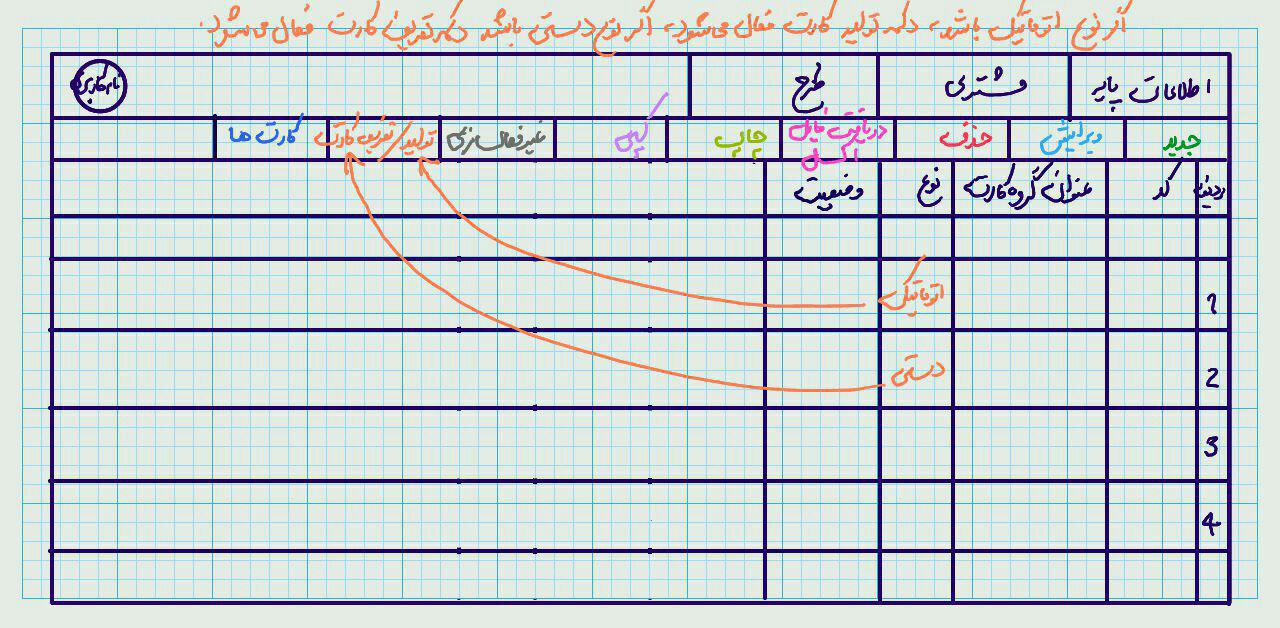 اگر نوع اتوماتیک باشد، دکمه تولید کارت فعال می‌شود، اگر نوع دستی باشد دکمه تعریف کارت فعال می‌شود.
اطلاعات پایه
مشتری
طرح
نام کاربری
جدید
ویرایش
حذف
دریافت فایل
اکسل
چاپ
کپی
غیرفعال سازی
تولید/تعریف کارت
کارت ها
ردیف
کد
عنوان گروه کارت
نوع
وضعیت
1
اتوماتیک
2
دستی
3
4